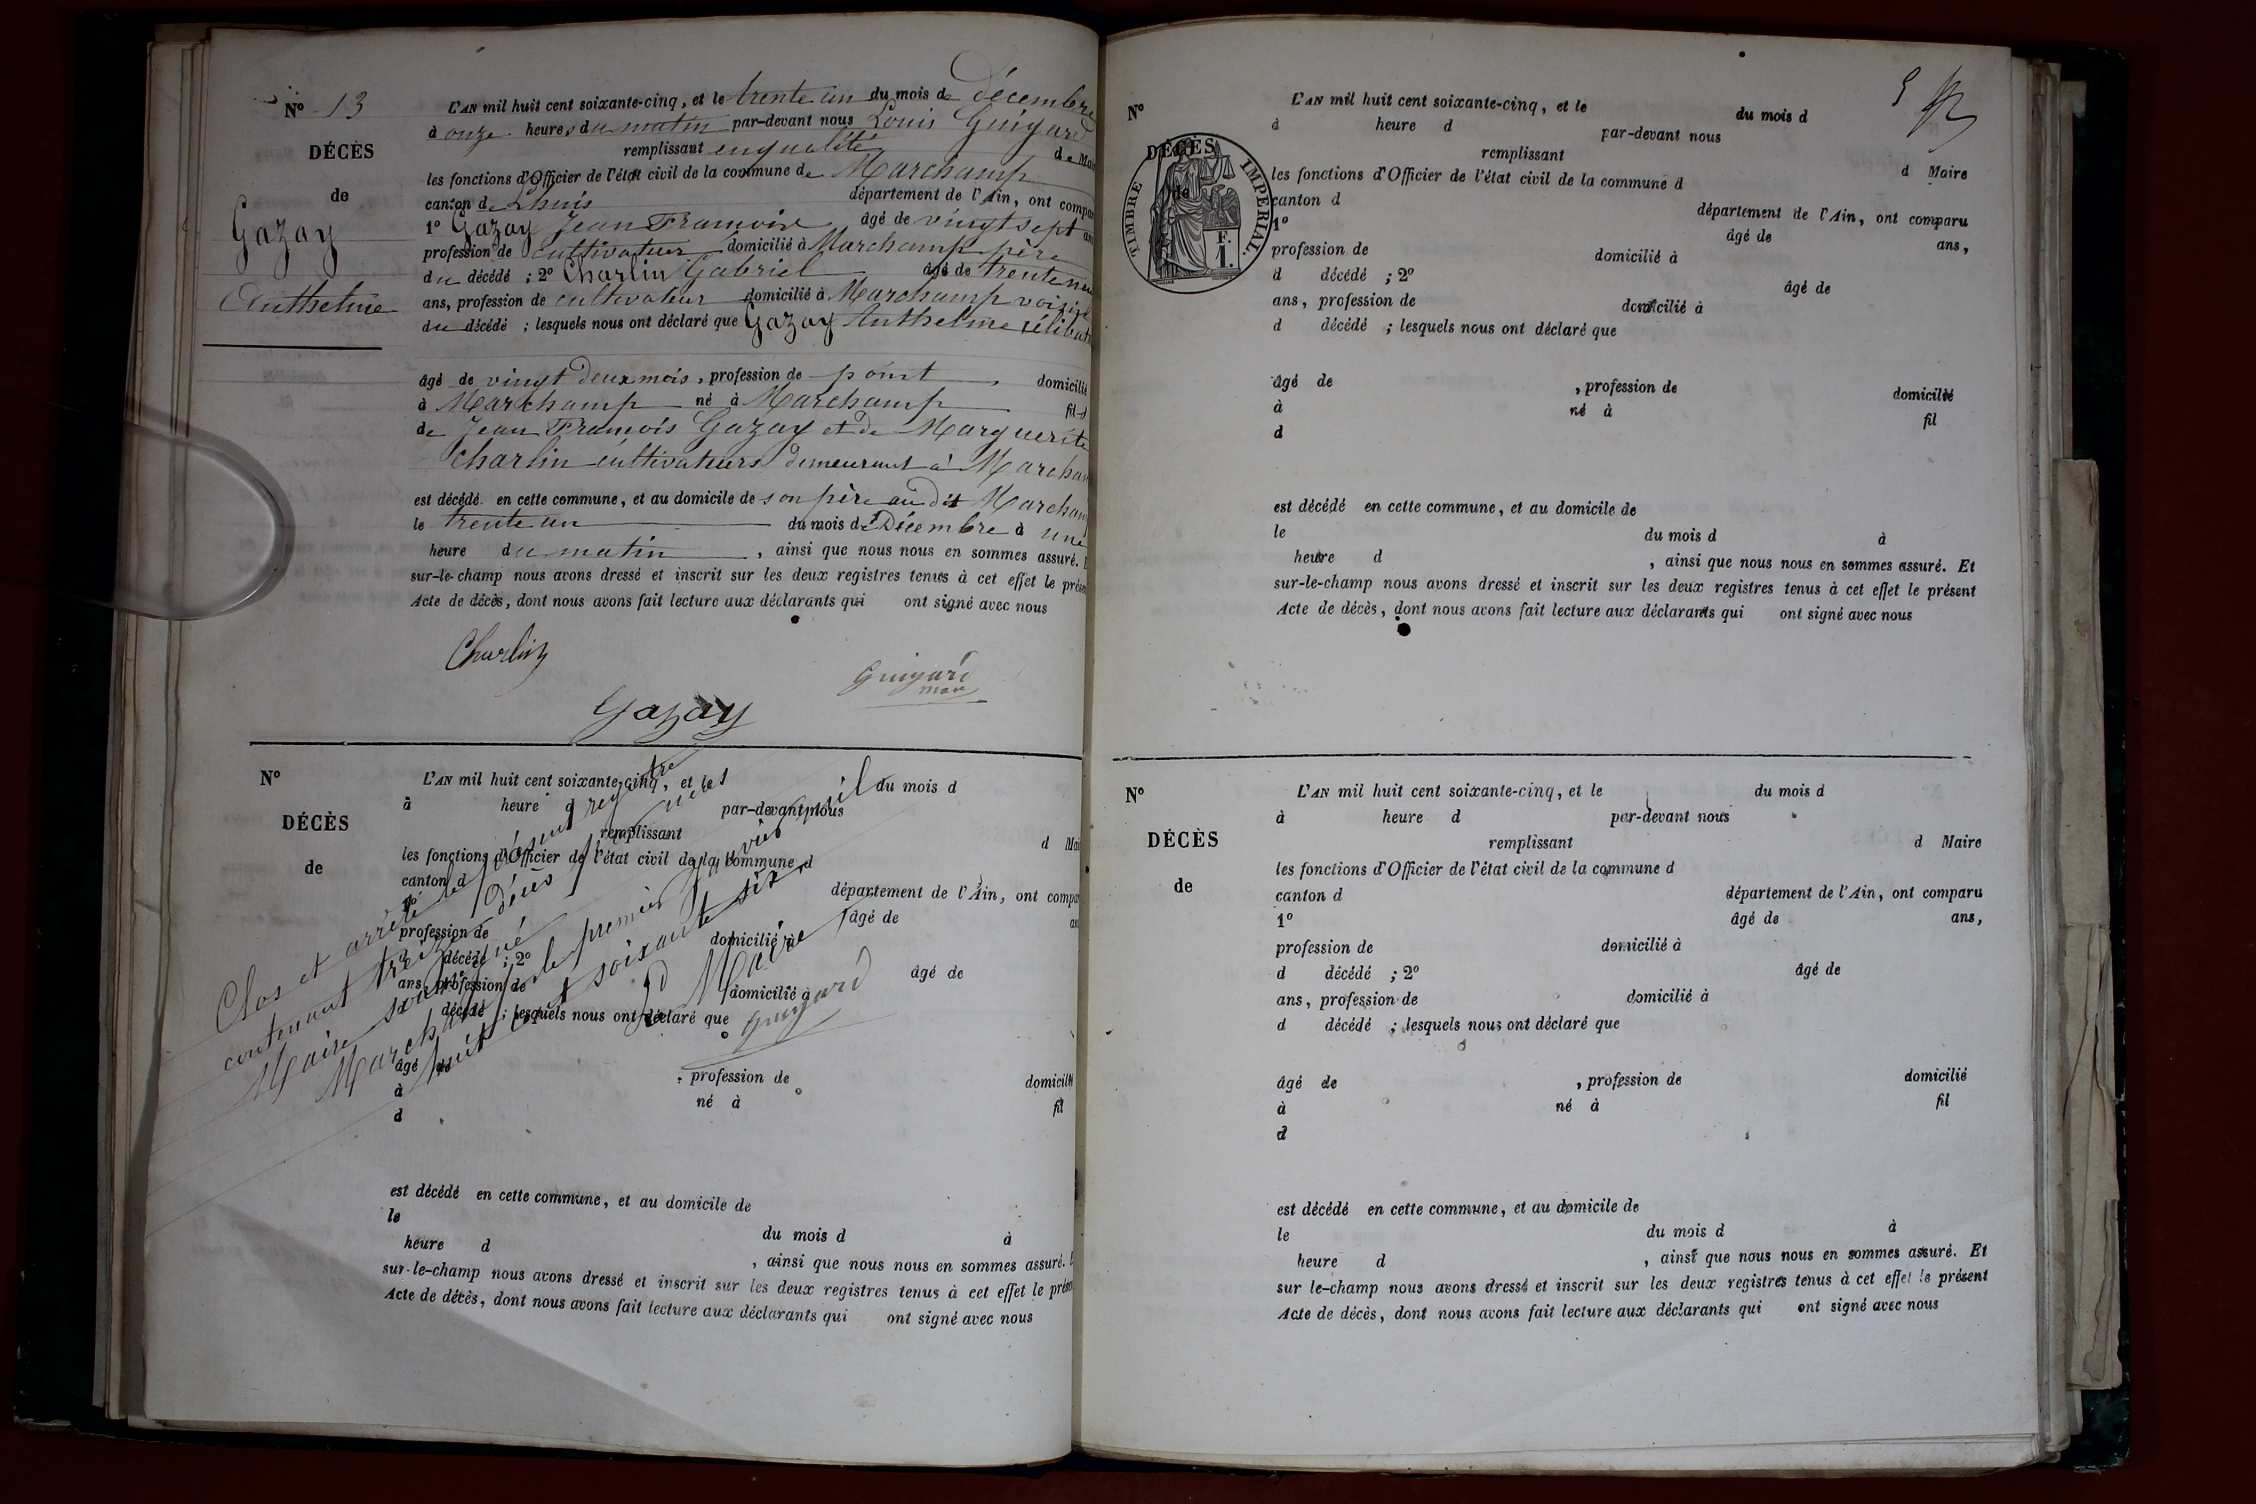 N° 13
DÉCÈS
de
Gazay
Anthelme
L'AN mil huit cent soixante-cinq, et le trente un du mois de Décembre
à onze heures du matin par-devant nous Louis Guigard
remplissant en qualité de Mai
les fonctions d'Officier de l'état civil de la commune de Marchamp
canton de Lhuis département de l'Ain, ont compa
1° Gazay Jean François âgé de vingt sept an
profession de cultivateur domicilié à Marchamp père
du décédé ; 2° Charlin Gabriel âgé de trente neu
ans, profession de cultivateur domicilié à Marchamp voisin
du décédé ; lesquels nous ont déclaré que Gazay Anthelme célibat
âgé de vingt deux mois, profession de point, domicilié
à Marchamp né à Marchamp fils
de Jean François Gazay et de Marguerite
Charlin cultivateurs demeurant à Marcham
est décédé en cette commune, et au domicile de son père au dit Marcham
le trente un du mois de Décembre à une
heure du matin, ainsi que nous nous en sommes assuré. E
sur-le-champ nous avons dressé et inscrit sur les deux registres tenus à cet effet le prése
Acte de décès, dont nous avons fait lecture aux déclarants qui ont signé avec nous
Charlin
Guigard
maire
Gazay
N°
DÉCÈS
de
L'AN mil huit cent soixante-cinq, et le du mois d
à heure d par-devant nous
remplissant d Mai
les fonctions d'Officier de l'état civil de la commune d
canton d département de l'Ain, ont compa
1° âgé de an
profession de domicilié à
d décédé ; 2° âgé de
ans, profession de domicilié à
d décédé ; lesquels nous ont déclaré que
âgé de , profession de domicilié
à né à fil
d
est décédé en cette commune, et au domicile de
le du mois d à
heure d , ainsi que nous nous en sommes assuré. E
sur-le-champ nous avons dressé et inscrit sur les deux registres tenus à cet effet le prése
Acte de décès, dont nous avons fait lecture aux déclarants qui ont signé avec nous
Clos et arrêté le présent registre
contenant treize décès
Maire soussigné
Marchamp le premier Janvier mil
huit cent soixante six
Maire
Guigard
5
N°
DÉCÈS
de
TIMBRE IMPERIAL
F.
1.
L'AN mil huit cent soixante-cinq, et le du mois d
à heure d par-devant nous
remplissant d Maire
les fonctions d'Officier de l'état civil de la commune d
canton d département de l'Ain, ont comparu
1° âgé de ans,
profession de domicilié à
d décédé ; 2° âgé de
ans, profession de domicilié à
d décédé ; lesquels nous ont déclaré que
âgé de , profession de domicilié
à né à fil
d
est décédé en cette commune, et au domicile de
le du mois d à
heure d , ainsi que nous nous en sommes assuré. Et
sur-le-champ nous avons dressé et inscrit sur les deux registres tenus à cet effet le présent
Acte de décès, dont nous avons fait lecture aux déclarants qui ont signé avec nous
N°
DÉCÈS
de
L'AN mil huit cent soixante-cinq, et le du mois d
à heure d par-devant nous
remplissant d Maire
les fonctions d'Officier de l'état civil de la commune d
canton d département de l'Ain, ont comparu
1° âgé de ans,
profession de domicilié à
d décédé ; 2° âgé de
ans, profession de domicilié à
d décédé ; lesquels nous ont déclaré que
âgé de , profession de domicilié
à né à fil
d
est décédé en cette commune, et au domicile de
le du mois d à
heure d , ainsi que nous nous en sommes assuré. Et
sur le-champ nous avons dressé et inscrit sur les deux registres tenus à cet effet le présent
Acte de décès, dont nous avons fait lecture aux déclarants qui ont signé avec nous